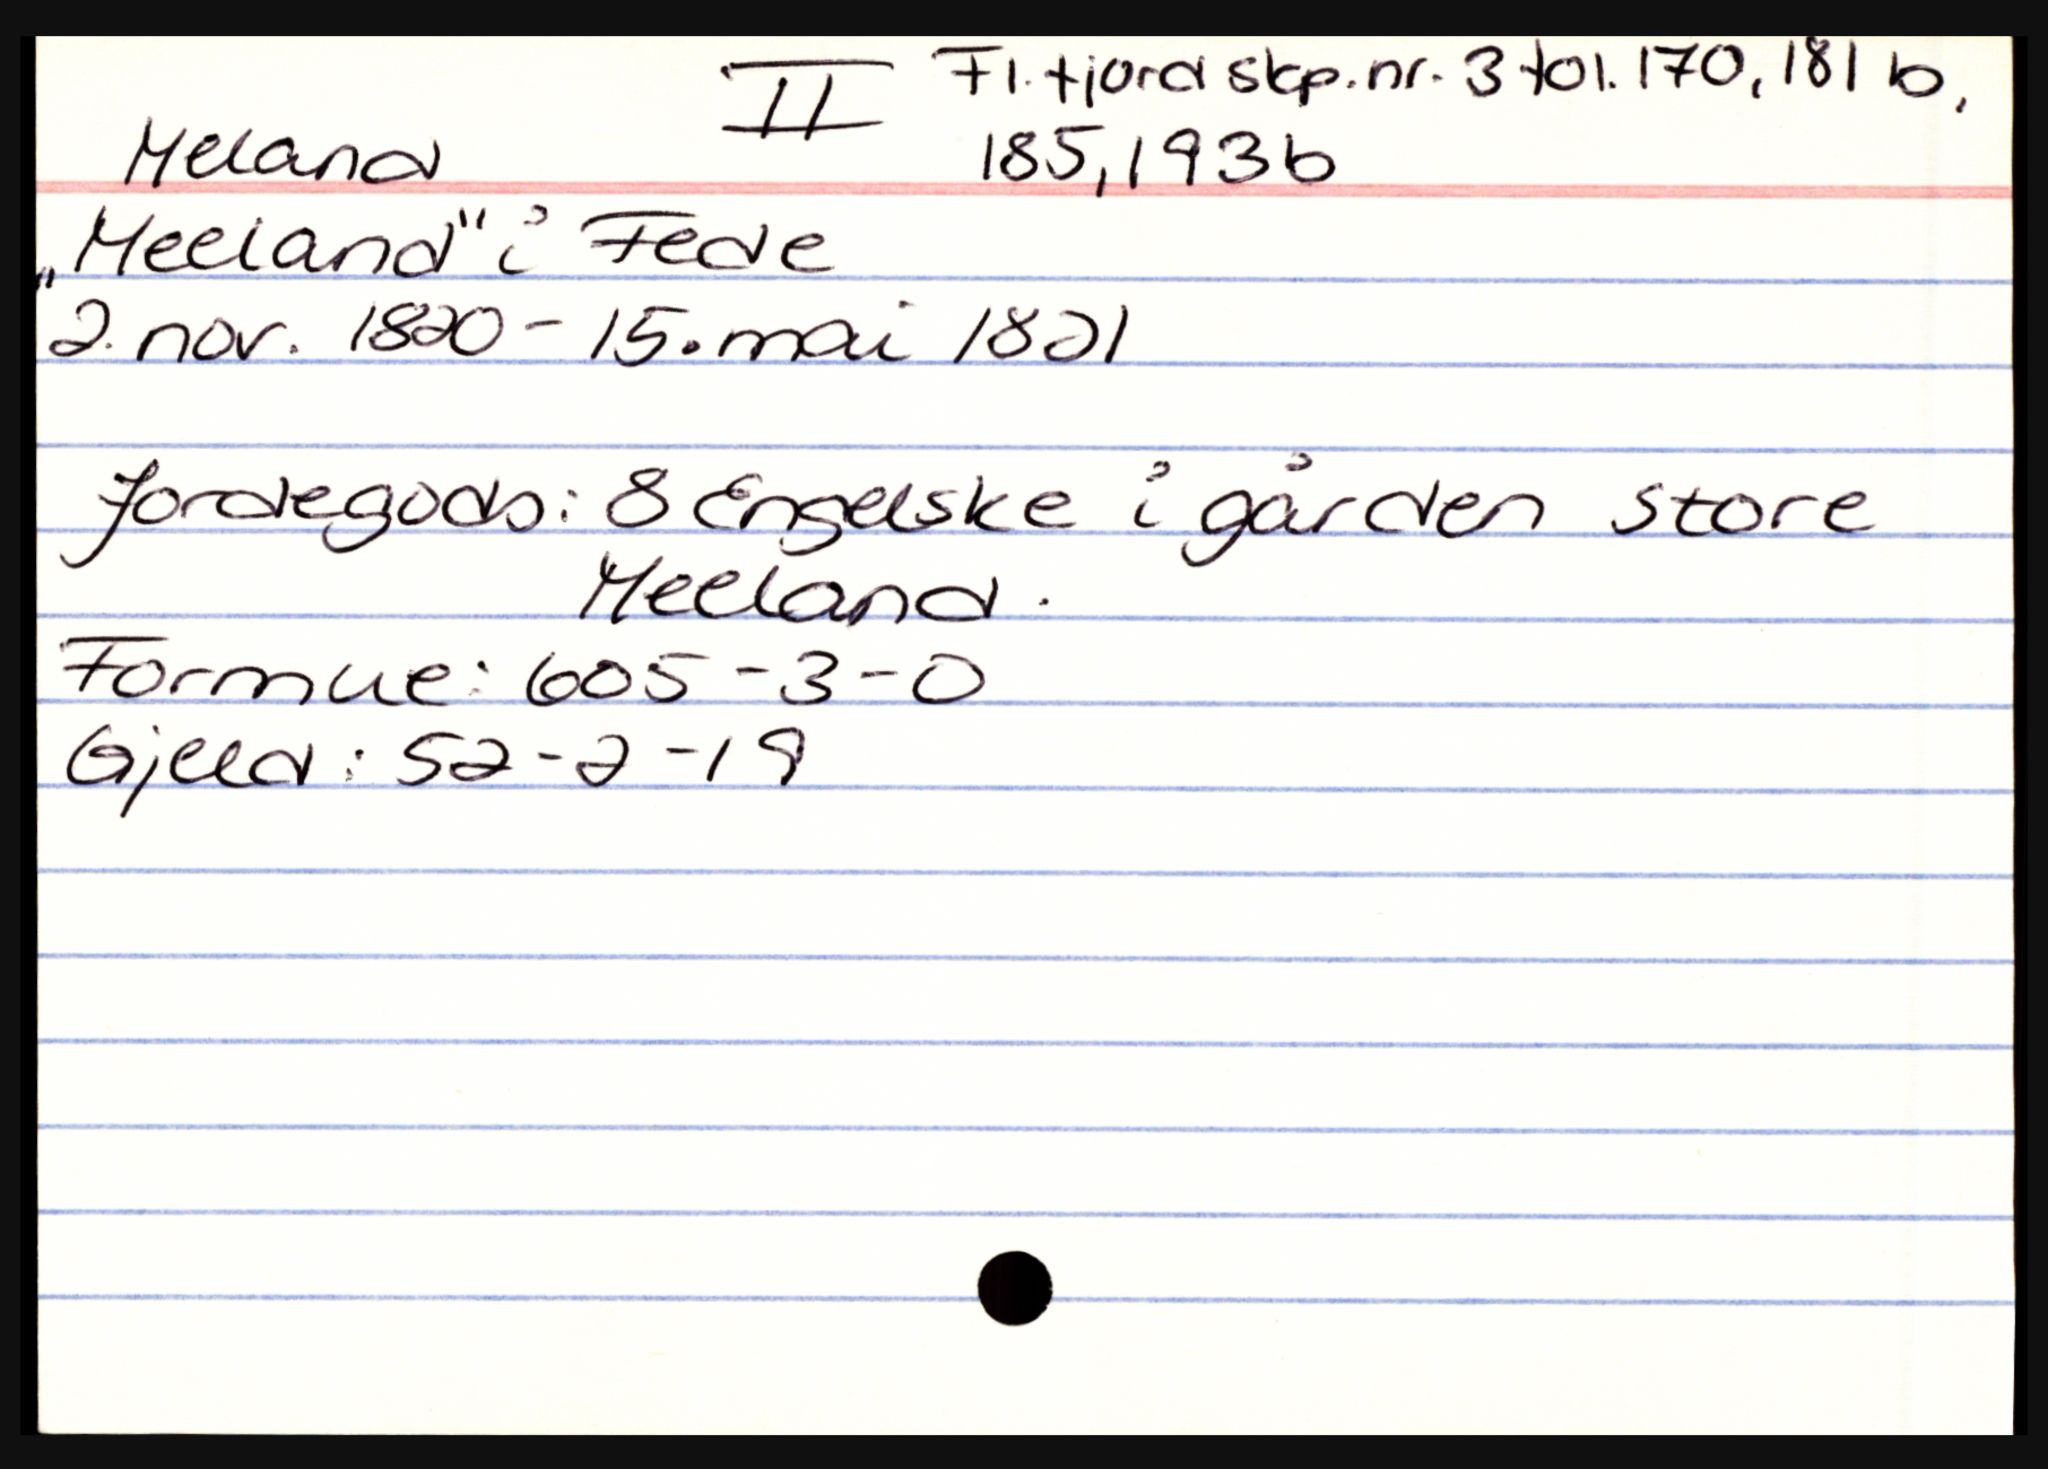 II Fl.fjord skp.nr. 3 fol. 170, 181 b,
Meland 185, 193b
„Meeland" i Fede
"2. nov. 1820 - 15. mai 1821
Jordegods: 8 Engelske i gården store
Meeland.
Formue: 605-3-0
Gjeld: 52-2-19